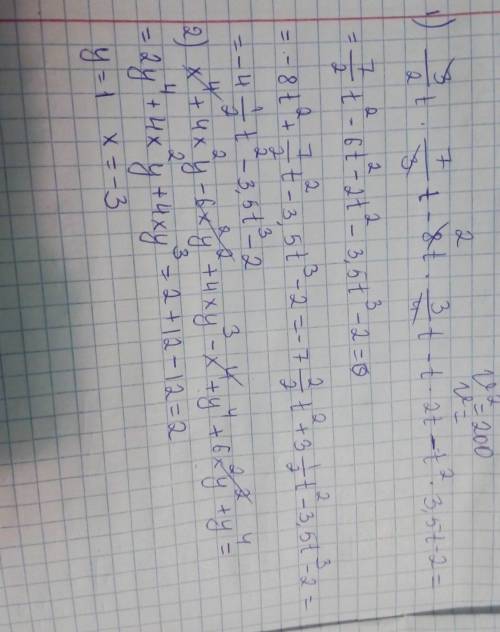 v² = 200
v =
1) 3/2 t · 7/3 t - 8t · 3/4 t - t · 2t - t² · 3,5t - 2 =
= 7/2 t² - 6t² - 2t² - 3,5t³ - 2 = 0
= -8t² + 7/2 t² - 3,5t³ - 2 = -7 2/2 t² + 3 1/2 t² - 3,5t³ - 2 =
= -4 1/2 t² - 3,5t³ - 2
2) x⁴ + 4x²y - 6x²y² + 4xy³ - x⁴ + y⁴ + 6x²y² + y⁴ =
= 2y⁴ + 4x²y + 4xy³ = 2 + 12 - 12 = 2
y = 1 x = -3